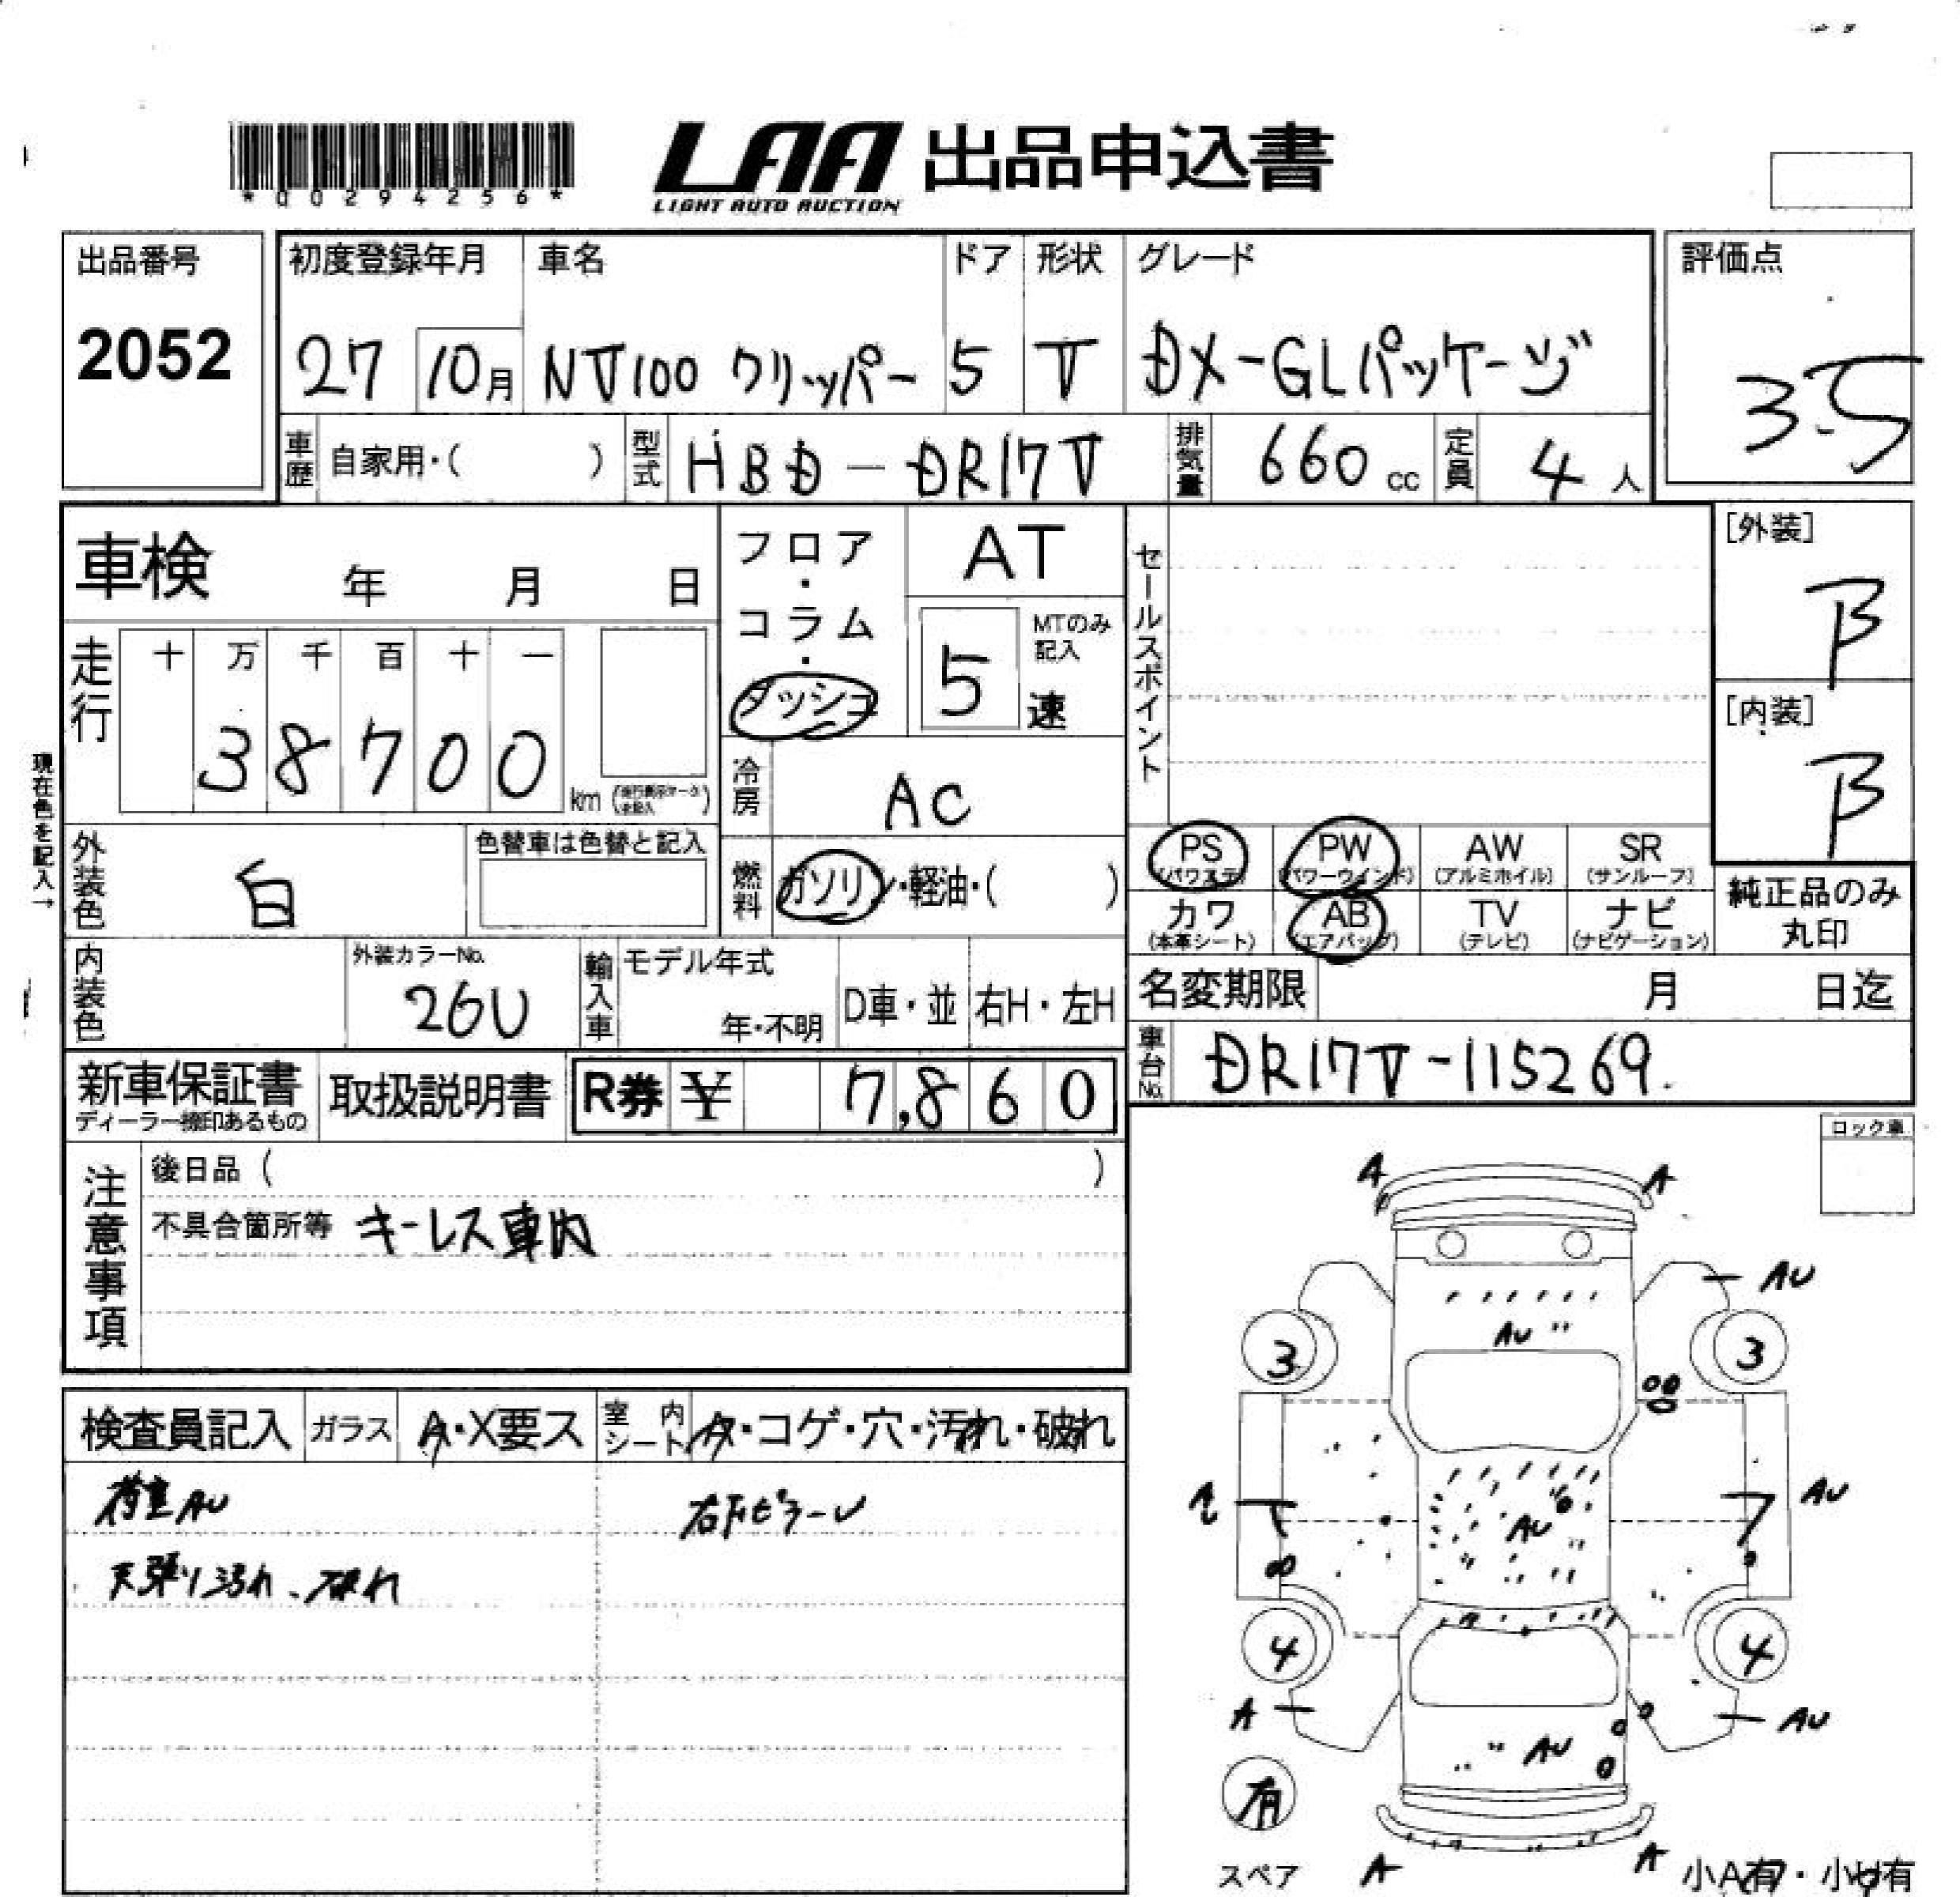 *00294256*
LAA 出品申込書
LIGHT AUTO AUCTION
出品番号
2052
初度登録年月
27 10月
車名
NV100 クリッパー
ドア
5
形状
V
グレード
DX-GLパッケージ
評価点
3.5
車歴 自家用・( )
型式 HBD-DR17V
排気量 660 cc
定員 4人
車検 年 月 日
フロア・コラム・ダッシュ
AT
5 速
MTのみ記入
セールスポイント
[外装]
B
[内装]
B
走行
十 万 千 百 十 一
38700 km
現在色を記入→
冷房 AC
外装色 白
色替車は色替と記入
燃料 ガソリン・軽油・( )
PS (パワステ)
PW (パワーウインド)
AW (アルミホイル)
SR (サンルーフ)
カワ (本革シート)
AB (エアバッグ)
TV (テレビ)
ナビ (ナビゲーション)
純正品のみ
丸印
内装色
外装カラーNo.
26U
輸入車
モデル年式
年・不明
D車・並
右H・左H
名変期限 月 日迄
車台No. DR17V-115269.
新車保証書
ディーラー捺印あるもの
取扱説明書
R券 ¥ 7,860
ロック車
注意事項
後日品 ( )
不具合箇所等 キーレス車内
検査員記入
ガラス
A・X要ス
室内シート
A・コゲ・穴・汚れ・破れ
荷室AU
右FピラーU
天張り汚れ、破れ
A
A
AU
AU
3
3
AU
AU
4
4
A
AU
AU
有
スペア
A
A
小A有・小U有